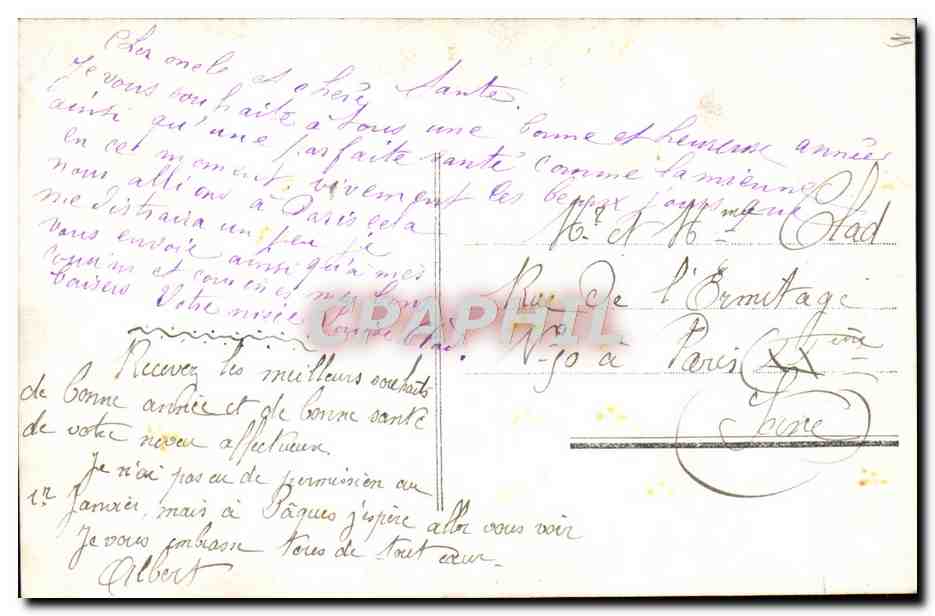 Cher oncle et chère tante.
Je vous souhaite à tous une bonne et heureuse année
ainsi qu'une parfaite santé comme la mienne
en ce moment, vivement les beaux jours que
nous allions à Paris cela
me distraira un peu je
vous envoie ainsi qu'à mes
et mes bons
baisers Votre nièce
Recevez les meilleurs souhaits
de bonne année et de bonne santé
de votre neveu affectueux.
Je n'ai pas eu de permission au
1er Janvier, mais à Pâques j'espère aller vous voir
Je vous embrasse tous de tout cœur.
Albert
Mr et Mme Clad
Rue de l'Ermitage
N° 30 à Paris XXième
Seine
CPAPHIL